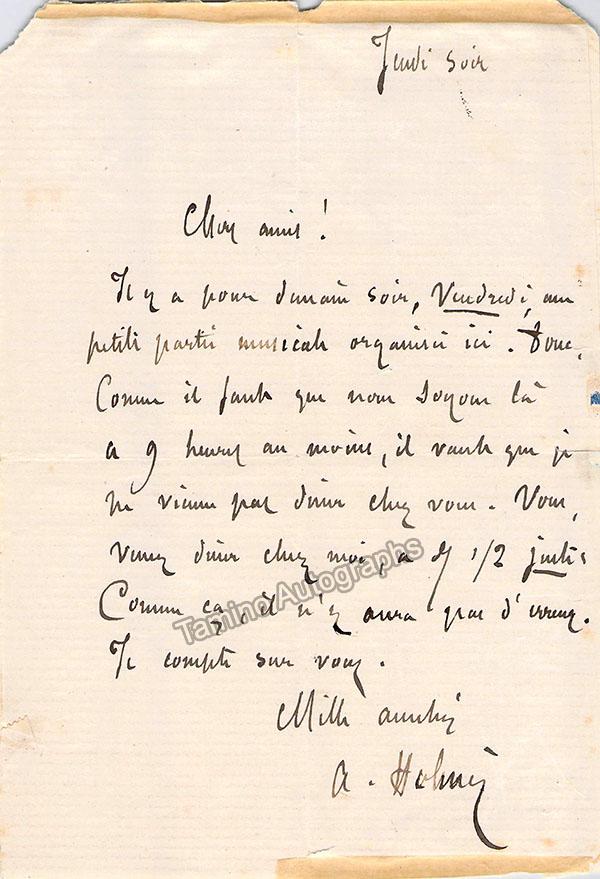 Jeudi soir
Chers amis !
Il y a pour demain soir, Vendredi, une
petite partie musicale organisée ici. Donc,
Comme il faut que nous soyons là
a 9 heures au moins, il vaut que je
ne vienne pas diner chez vous. Vous,
venez diner chez moi, a 1/2 juste
Comme ça, il n'y aura pas d'erreur.
Je compte sur vous.
Mille amitiés
A. Holmès
Tamino Autographs